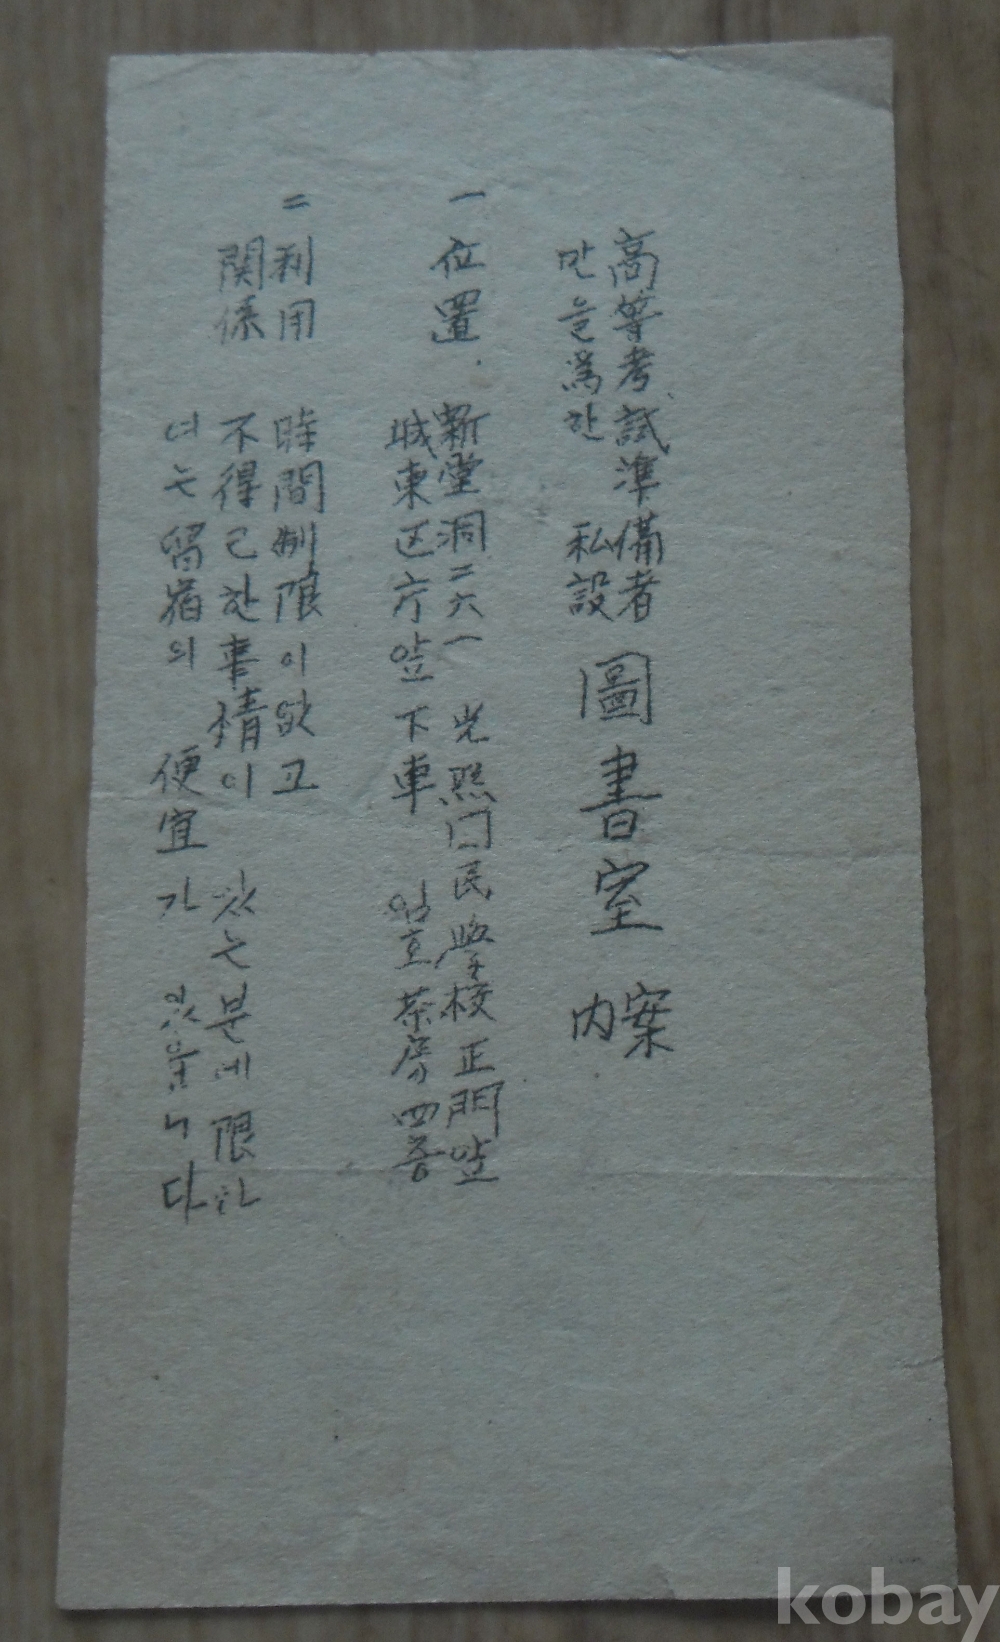 高等考試準備者
만을爲한 私設
圖書室
案內
一 位置
新堂洞二六一 光熙国民學校正門앞
城東区庁앞 下車 임호茶房四층
二 利用
関係
時間制限이없고
不得已한事情이 있는분에限하
여는留宿의 便宜가 있읍니다
kobay